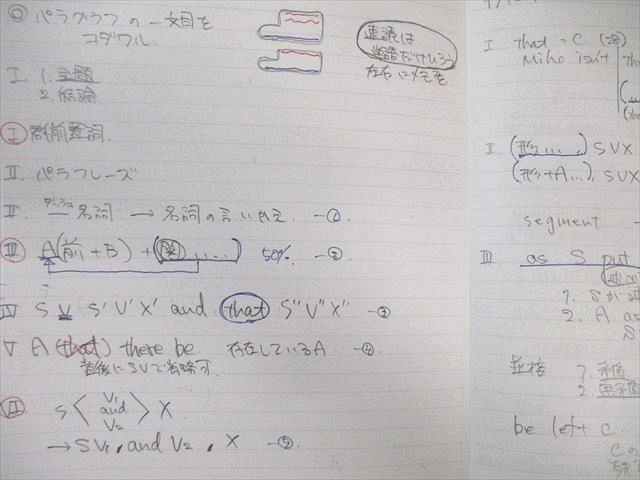 ◎ パラグラフの一文目を
コダワル.
速読は
単語だけひろう
左右にメモを
I. 1. 主題
2. 結論
I 群前置詞.
II. パラフレーズ
II. ダッシュ
— 名詞 → 名詞の言いかえ —①
III A(前+B) + ( ..... ) 50% —②
IV S V S'V'X' and that S"V"X" —③
V A (that) there be. 存在しているA —④
直後にSVで省略可.
VI S〈 V₁ and V₂ 〉X
→ SV₁, and V₂, X —⑤
I that = C
Miho isn't
I. (形..., ) SVX
(形+A...), SVX
segment
III as S put
1. Sが
2. A as
S
並接 1. 矛盾
2.
be left C
Cの